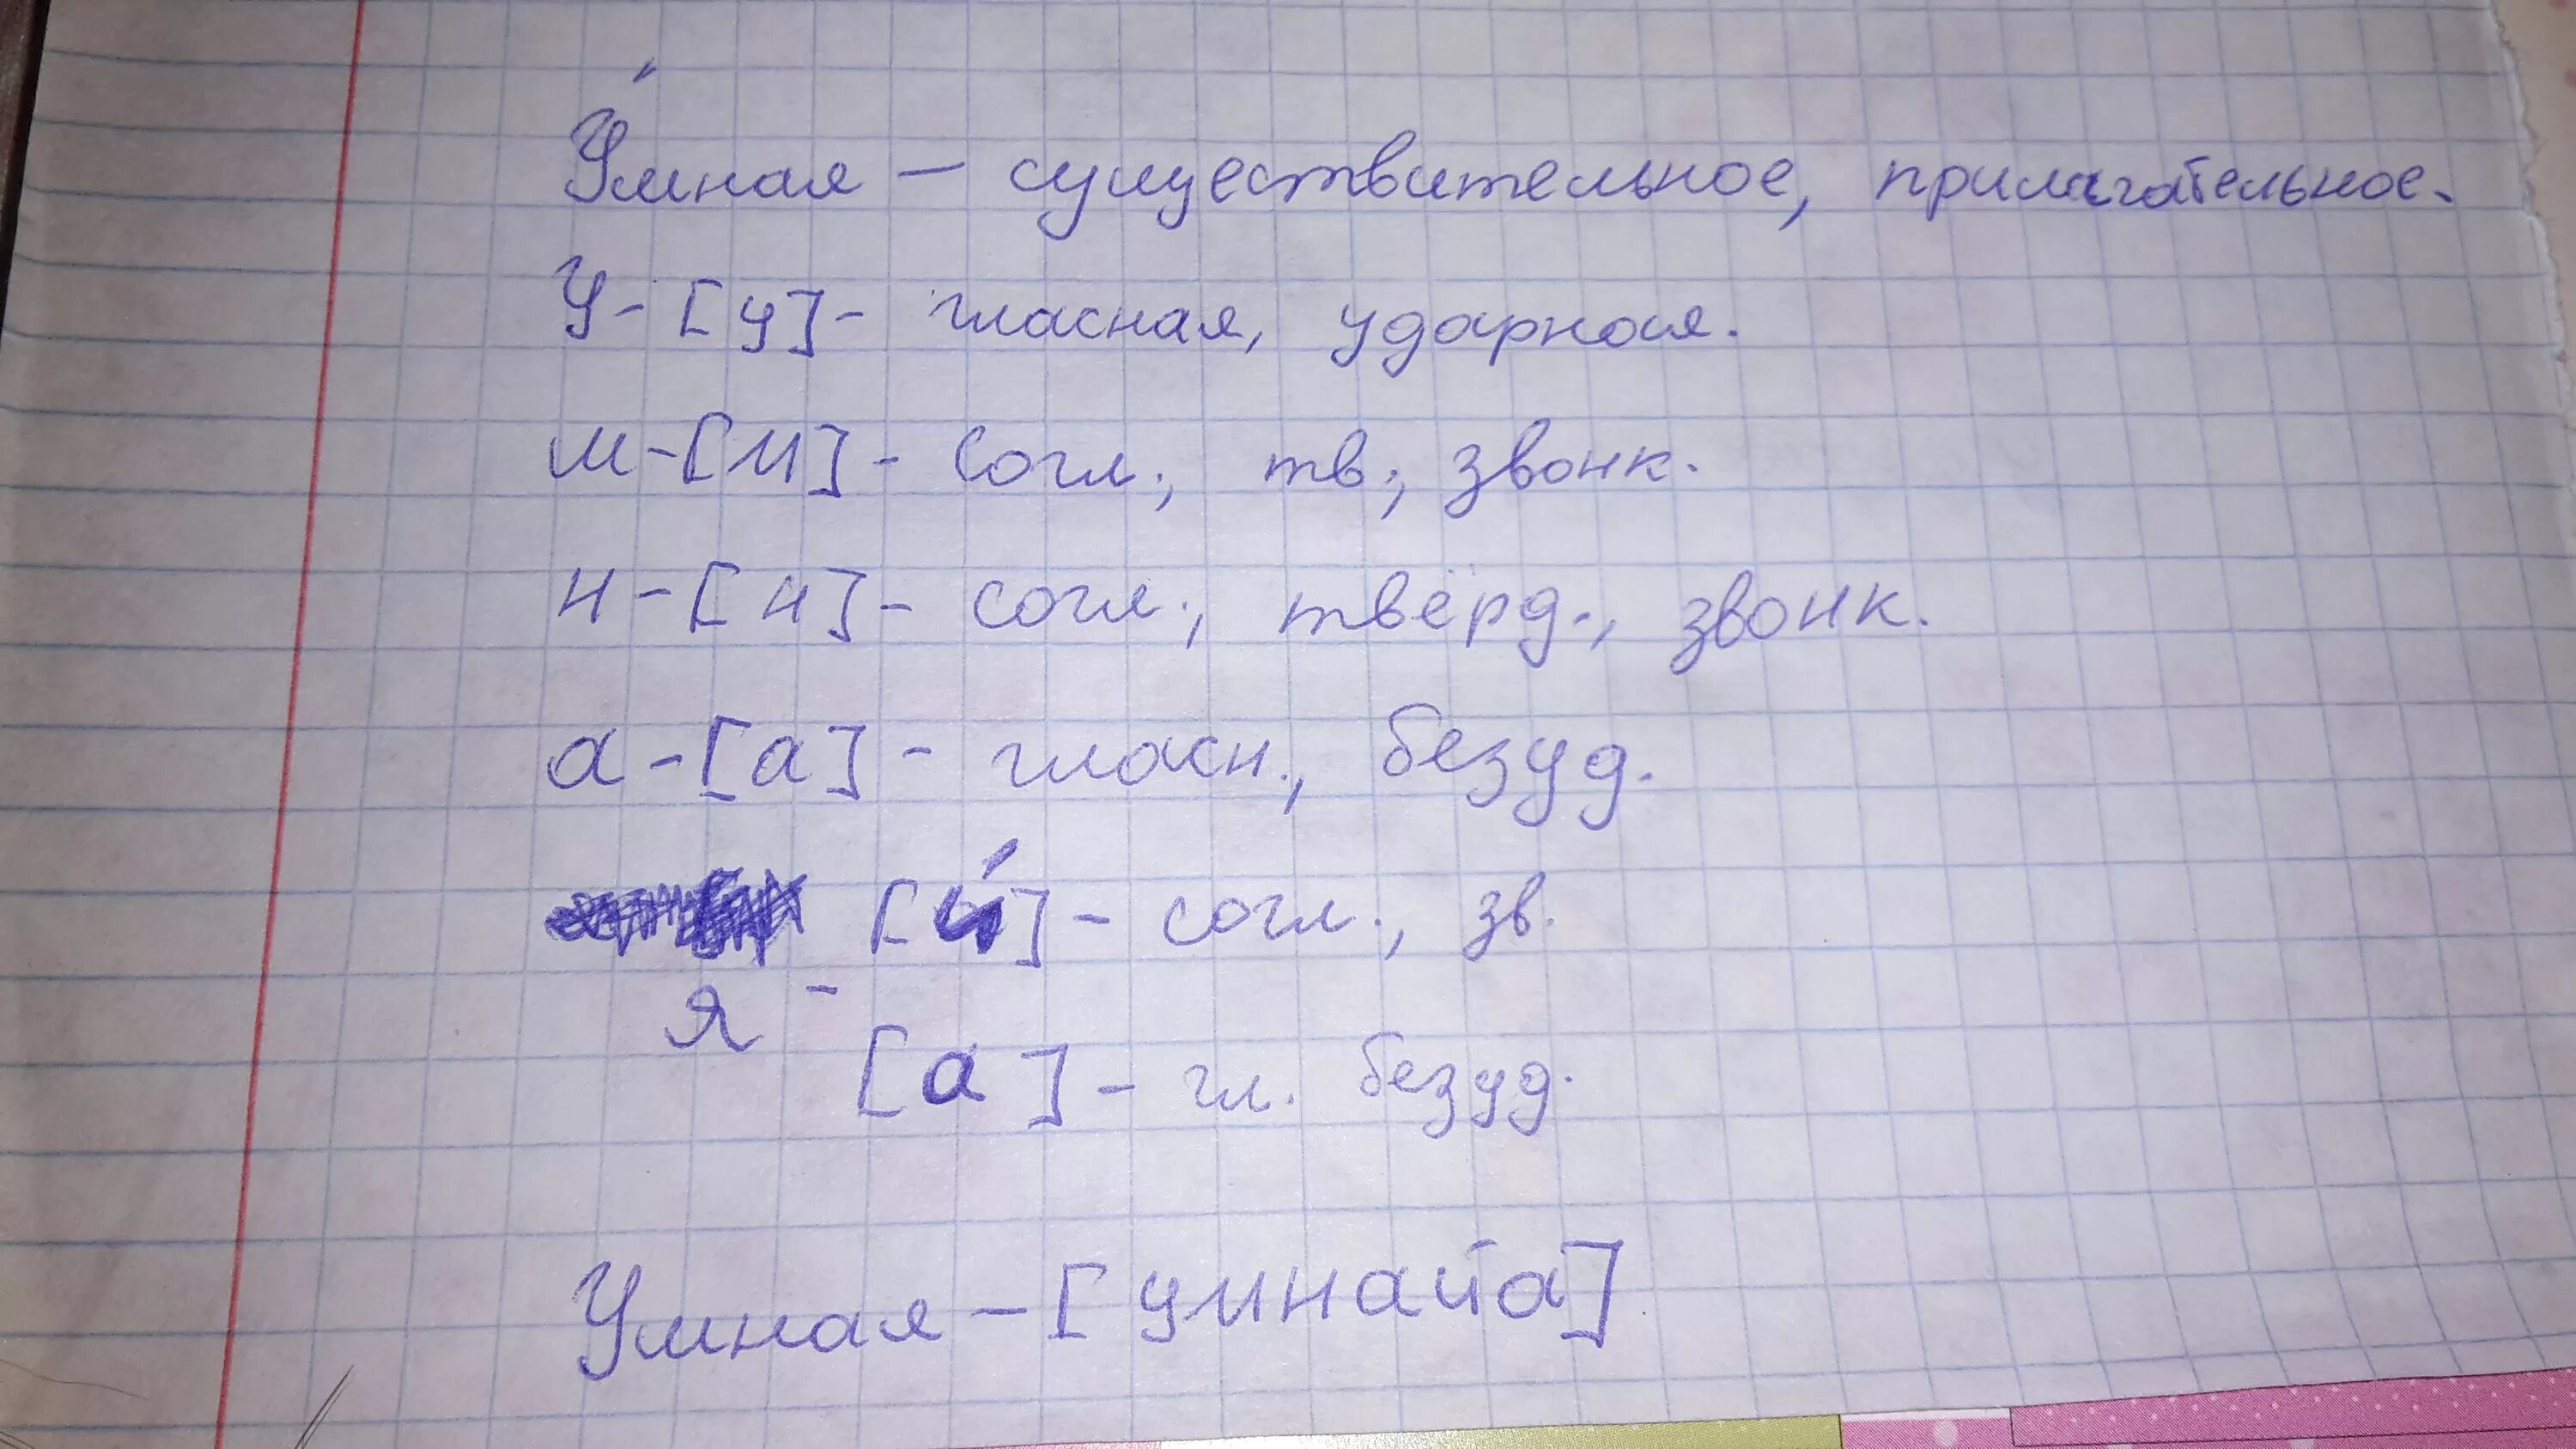 У́мная – существительное, прилагательное.
У - [у] - гласная, ударная.
м - [м] - согл., тв., звонк.
н - [н] - согл., твёрд., звонк.
а - [а] - гласн., безуд.
[й'] - согл., зв.
я -
[а] - гл. безуд.
Умная - [умнайа]